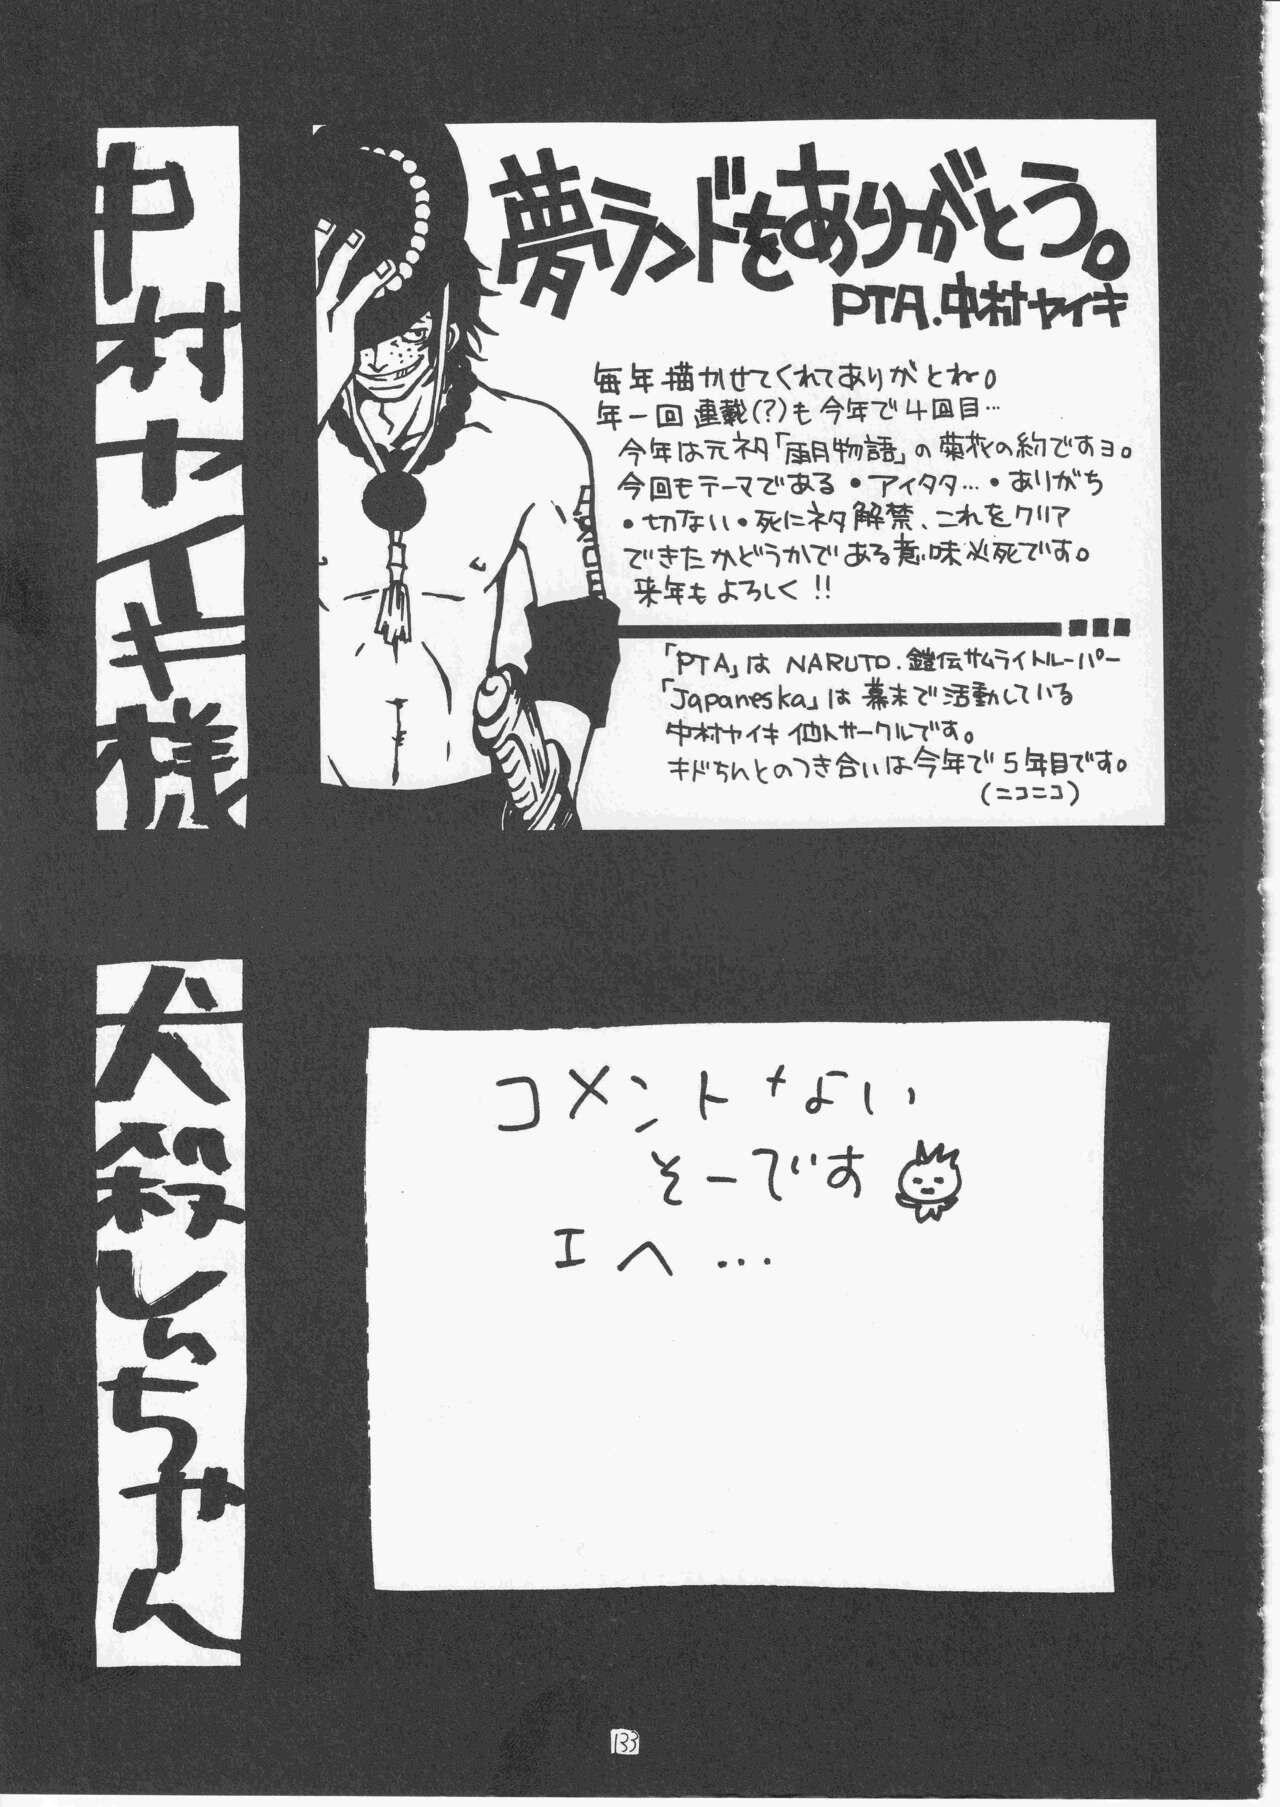 中村ヤイキ様
夢ランドをありがとう。
PTA.中村ヤイキ
毎年描かせてくれてありがとね。
年一回連載(?)も今年で4回目…
今年は元ネタ「雨月物語」の菊花の約ですヨ。
今回もテーマである・アイタタ…・ありがち
・切ない・死にネタ解禁、これをクリア
できたかどうかである意味必死です。
来年もよろしく!!
「PTA」は NARUTO.鎧伝サムライトルーパー
「Japaneska」は幕末で活動している
中村ヤイキ個人サークルです。
キドちんとのつき合いは今年で5年目です。
(ニコニコ)
犬殺しぃちゃん
コメントなよい
そーです
エヘ…
133